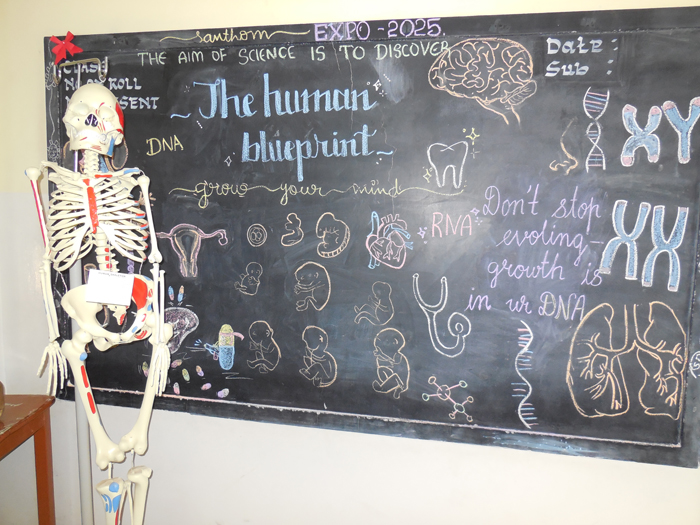 santhom EXPO -2025.
THE AIM OF SCIENCE IS TO DISCOVER
CLASS
ROLL
Date :
Sub :
The human
blueprint
DNA
grow your mind
XY
RNA
Don't stop
evoling-
growth is
in ur DNA
XX